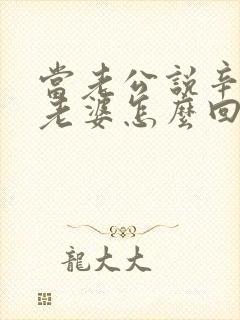 當老公說辛
老婆怎麼回
龍大大